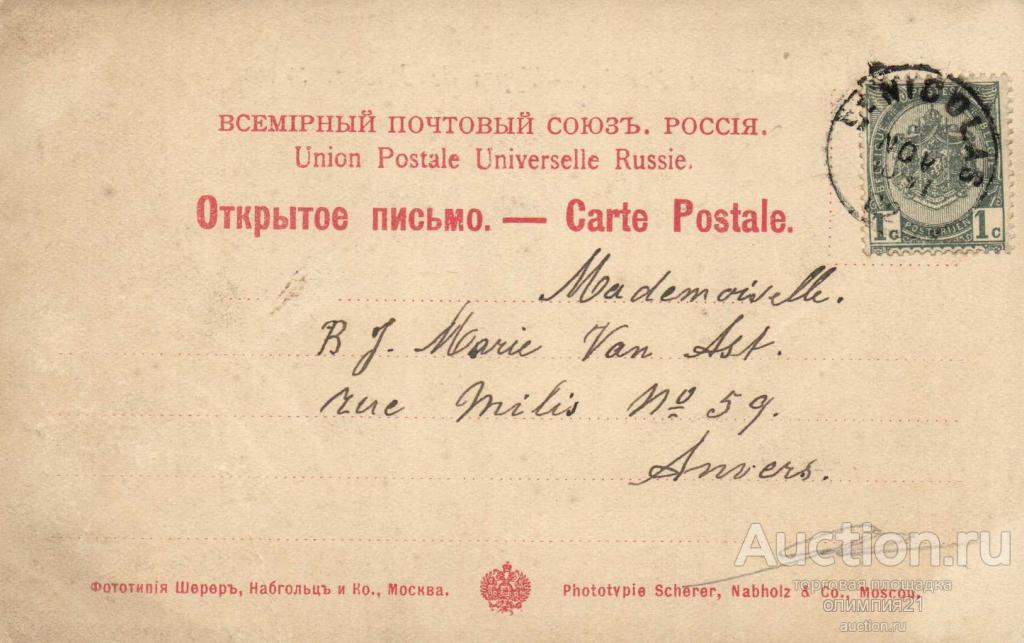 ВСЕМІРНЫЙ ПОЧТОВЫЙ СОЮЗЪ. РОССІЯ.
Union Postale Universelle Russie.
Открытое письмо. — Carte Postale.
NICOLAS
NOV
1 c 1 c
POSTERIJEN
Mademoiselle.
B J. Marie Van Ast.
rue Milis No 59.
Anvers.
Auction.ru
торговая площадка
олимпия21
auction.ru
Фототипія Шереръ, Набгольцъ и Ко., Москва.
Phototypie Scherer, Nabholz & Co., Moscou.